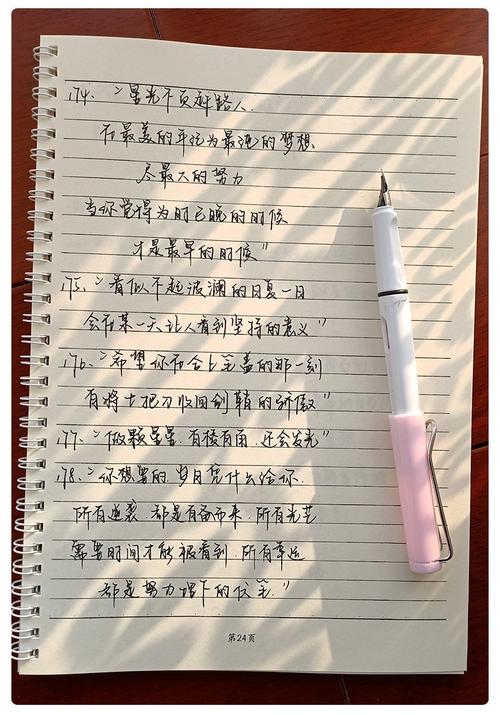 174、“星光不负赶路人
在最美的年纪为最纯的梦想
尽最大的努力
当你觉得为时已晚的时候
才是最早的时候”
175、“看似不起波澜的日复一日
会在某一天让人看到坚持的意义”
176、“希望你在合上笔盖的那一刻
有将士把刀收回到鞘的骄傲”
177、“做颗星星、有棱有角、还会发光”
178、“你想要的岁月凭什么给你
所有逆袭、都是有备而来、所有光芒
需要时间才能被看到、所有幸运
都是努力埋下的伏笔”
第24页